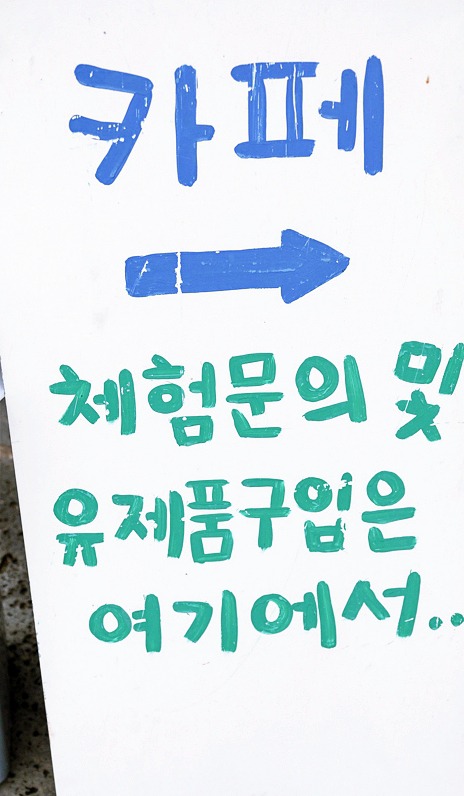 카페
체험문의 및
유제품구입은
여기에서..